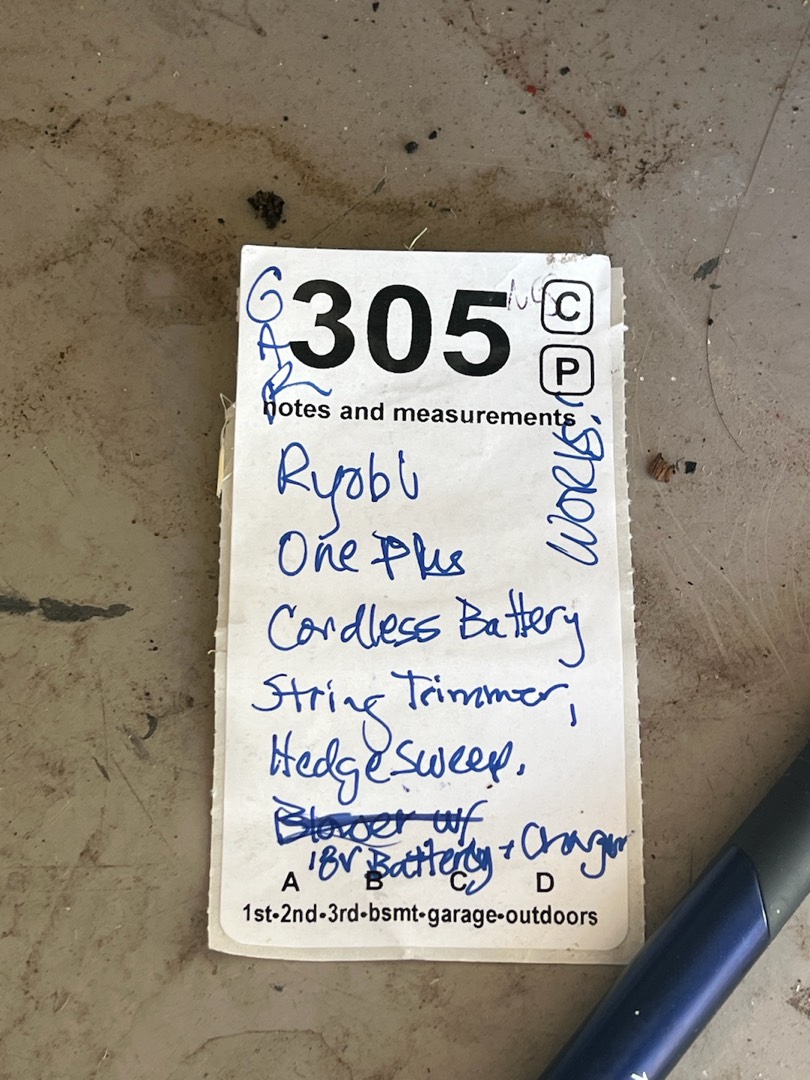 GAR
305
C
P
notes and measurements
WORKS!
Ryobi
One Plus
Cordless Battery
String Trimmer,
Hedge Sweep,
Blower w/
18v Battery + Charger
A B C D
1st-2nd-3rd-bsmt-garage-outdoors